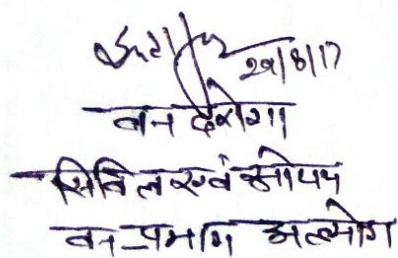 29/8/17
वन दरोगा
सिविल एवं सोयम
वन प्रभाग अल्मोड़ा